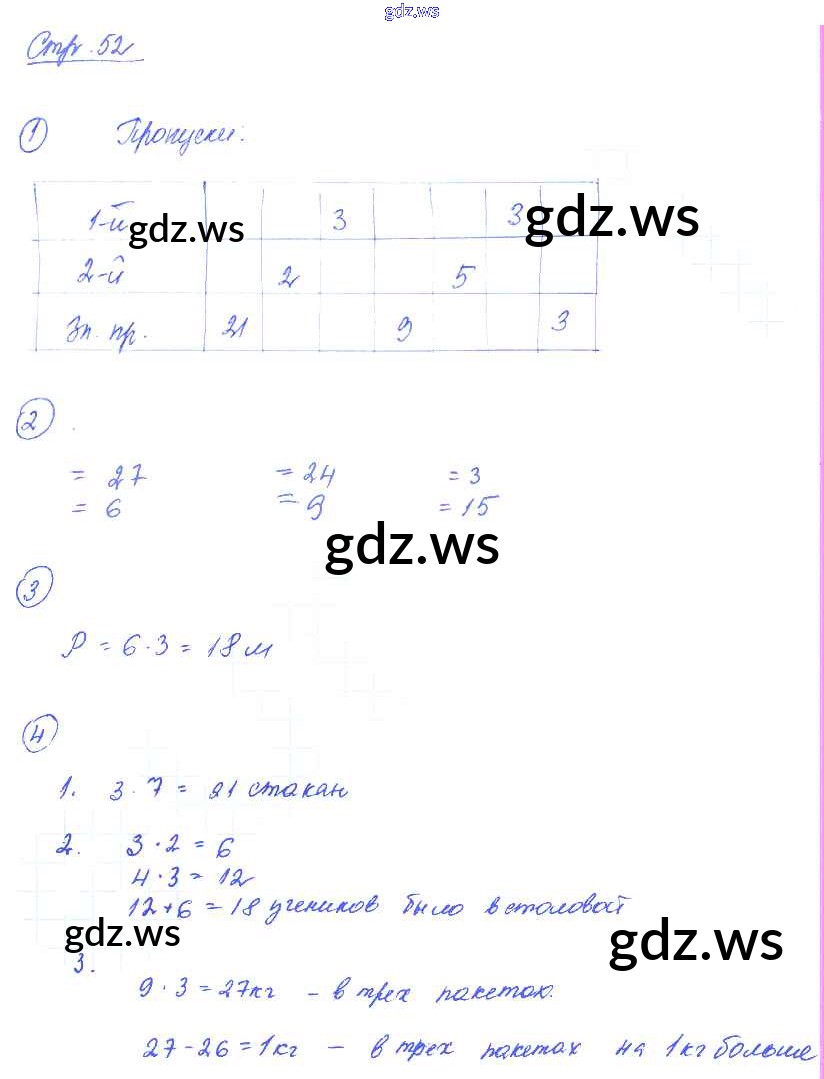 gdz.ws
Стр. 52
1 Пропуски:
1-й 3 3
gdz.ws gdz.ws
2-й 2 5
Зн. пр. 21 9 3
2
= 27 = 24 = 3
= 6 = 9 = 15
gdz.ws
3
P = 6·3 = 18 м
4
1. 3·7 = 21 стакан
2. 3·2 = 6
4·3 = 12
12+6 = 18 учеников было в столовой
gdz.ws gdz.ws
3.
9·3 = 27кг - в трех пакетах.
27-26 = 1кг - в трех пакетах на 1кг больше